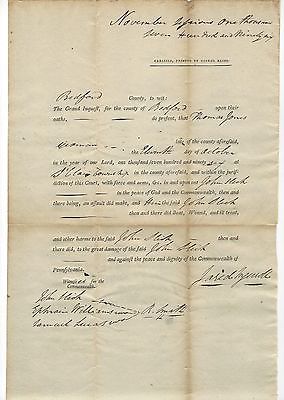 November Sessions One thousand
Seven Hundred and Ninety
CARLISLE, PRINTED BY GEORGE KLINE.
Bedford County, to wit:
The Grand Inquest, for the county of Bedford upon their
oaths, do present, that Thomas Jones
late of the county aforesaid,
yeoman on the day of October
in the year of our Lord, one thousand seven hundred and ninety
at St Clair township in the county aforesaid, and within the juris-
diction of this Court, with force and arms, &c. in and upon John
in the peace of God and the Commonwealth, and
there being, an assault did make, and Him the said John
then and there did Beat, Wound, and ill treat,
and other harms to the said John then and
there did, to the great damage of the said John
and against the peace and dignity of the Commonwealth of
Pennsylvania.
Witnesses for the
Commonwealth.
Jared Ingersoll
John
Ephraim Williams
R. Smith
Samuel